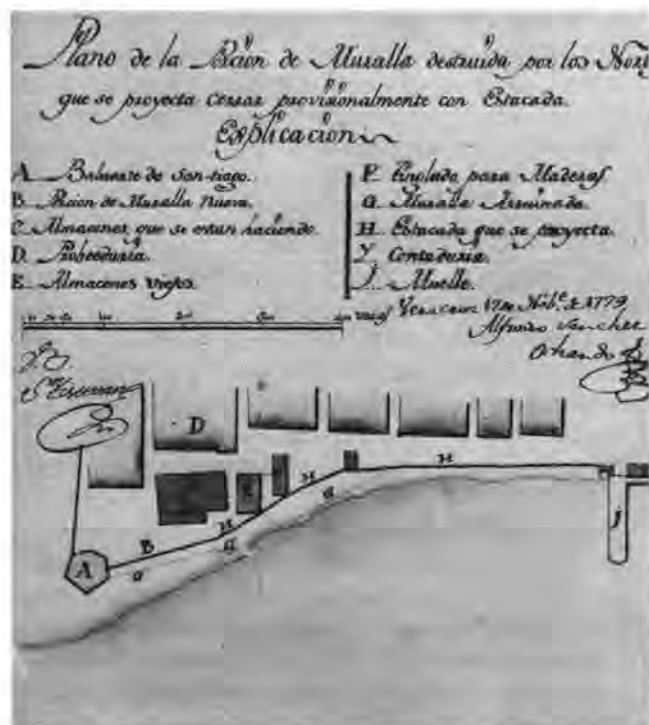 Plano de la Pcion de Muralla destruida por los Nort
que se proyecta cerrar provisionalmente con Estacada.
Explicacion
A Baluarte de San-tiago.
B. Pcion de Muralla nueva.
C. Almacenes que se estan haciendo.
D. Probeeduria.
E. Almacenes viejos.
F. Tinglado para Maderas
G. Muralla Arruinada.
H. Estacada que se proyecta.
Y. Contaduria.
J. Muelle.
Veracruz 17 de Nobe. de 1779
Alfonso Sanchez
Ochando
D
H
H
H
B
G
G
G
A
J